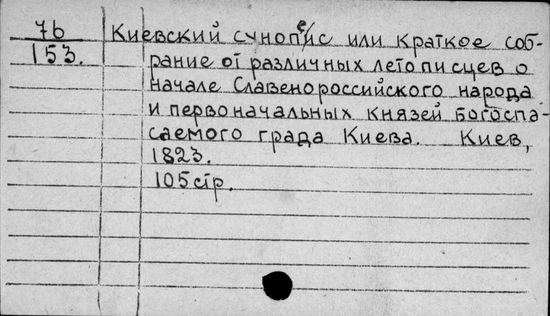 7б Киевский сунопеис или краткое соб-
153. рание от различных летописцев о
начале Славенороссийского народа
и первоначальных князей богоспа-
саемого града Киева. Киев,
1823.
105 стр.